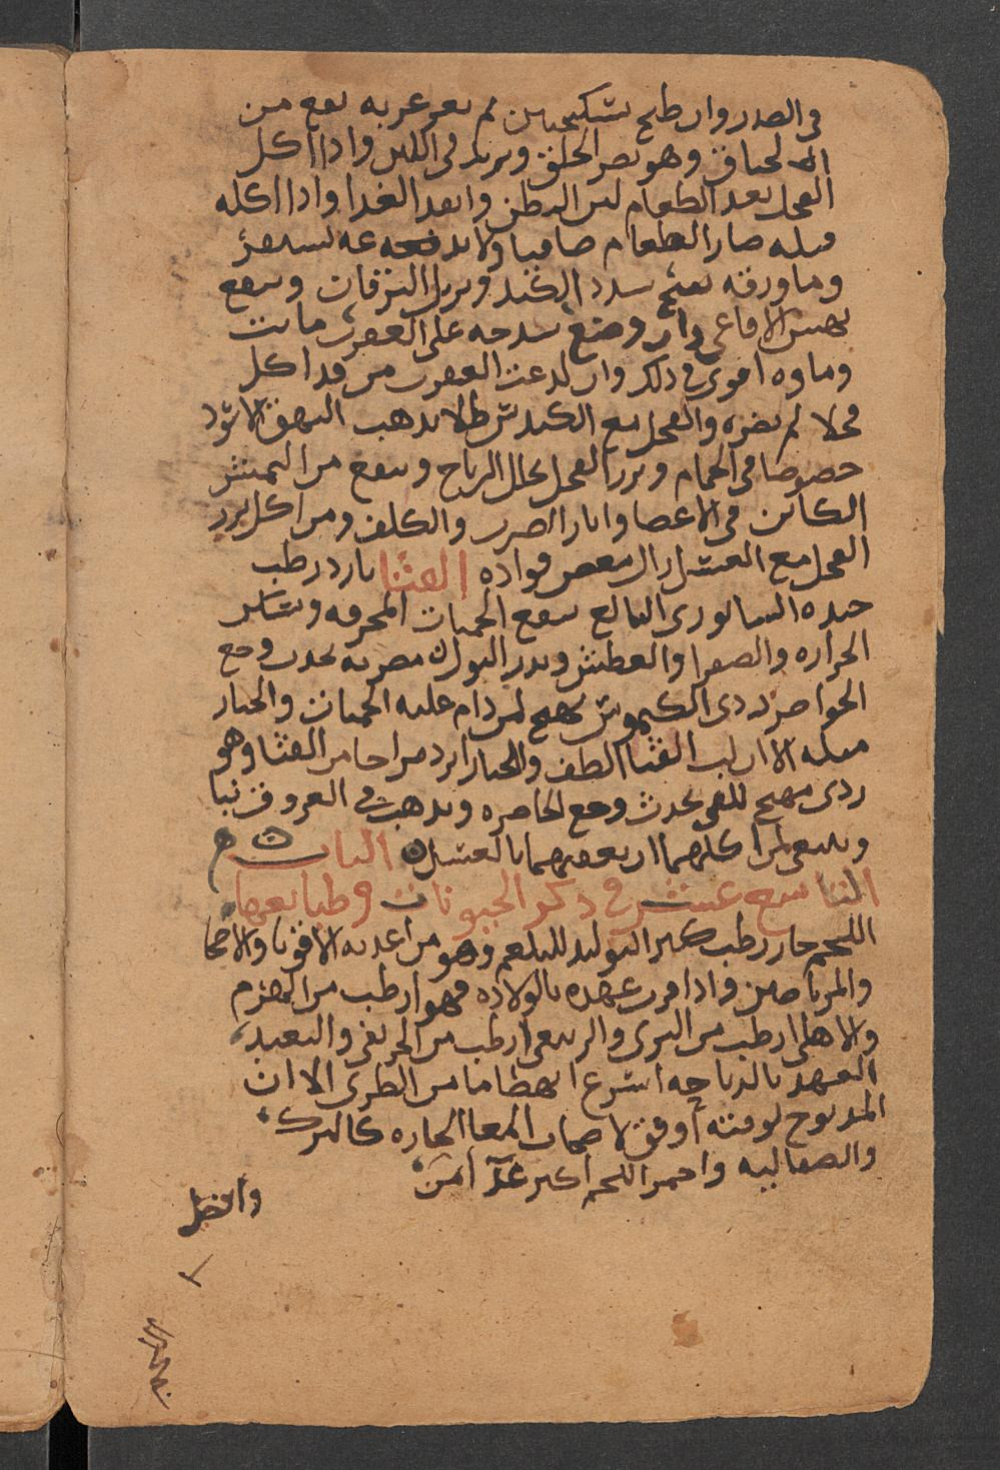 في الصدر وان طبخ بسكنجبين ثم يغرغر به نفع من
الخناق وهو يضر الحلق ويزيد في اللبن واذا اكل
الفجل بعد الطعام لين البطن وانفذ الغذا واذا اكله
قبله صار الطعام طافيا ولا يدعه يستقر
وما ورقه يفتح سدد الكبد ويزيل اليرقان وينفع
نهش الافاعي وان وضع شدخه على العقرب ماتت
وماوه اقوى في ذلك وان لدغت العقرب من قد اكل
فجلا لم يضره والفجل مع الكندس طلا يذهب البهق الاسود
خصوصا في الحمام وبزر الفجل يحلل الرياح وينفع من النمش
الكائن في الاعضا واثار الضرب والكلف ومن اكل بزر
الفجل مع العسل زال مغص فواده القثا بارد رطب
جيده النيسابوري البالغ ينفع الحميات المحرقه ويسكن
الحراره والصفرا والعطش ويدر البول مضرته يحدث وجع
الخواصر ردي الكيموس يهيج لمن دام عليه الحميات والخيار
مثله الا ان لب القثا الطف والخيار ابرد مزاجا من القثا وهو
ردي مهيج للقي يحدث وجع الخاصره ويذهب في العروق نيا
وينبغي لمن اكلهما ان يعقبهما بالعسل الباب
التاسع عشر في ذكر الحيونات وطبايعها
اللحم حار رطب كثير التوليد للبلغم وهو من اغذيه الاقويا والاصحا
والمرتاضين واذا قرب عهده بالولاده فهو ارطب من الهرم
والاهلي ارطب من البري والربيعي ارطب من الخريفي والبعيد
العهد بالذباحه اسرع انهضاما من الطري الا ان
المذبوح لوقته اوفق لاصحاب المعا الحاره كالترك
والصقالبه واحمر اللحم اكثر غذا من
وافضل